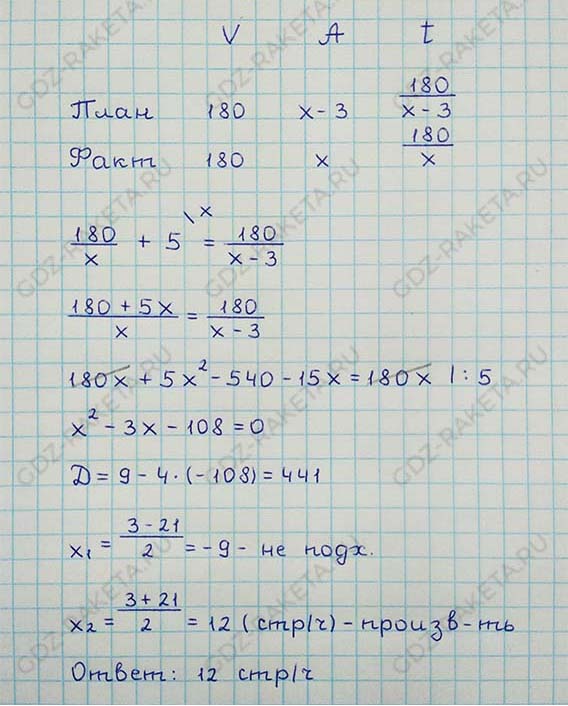 V A t
План 180 x-3 180/(x-3)
Факт 180 x 180/x
180/x + 5 \x = 180/(x-3)
(180+5x)/x = 180/(x-3)
180x + 5x² - 540 - 15x = 180x |:5
x² - 3x - 108 = 0
Д = 9 - 4·(-108) = 441
x₁ = (3-21)/2 = -9 - не подх.
x₂ = (3+21)/2 = 12 (стр/ч) - произв-ть
Ответ: 12 стр/ч
GDZ-RAKETA.RU